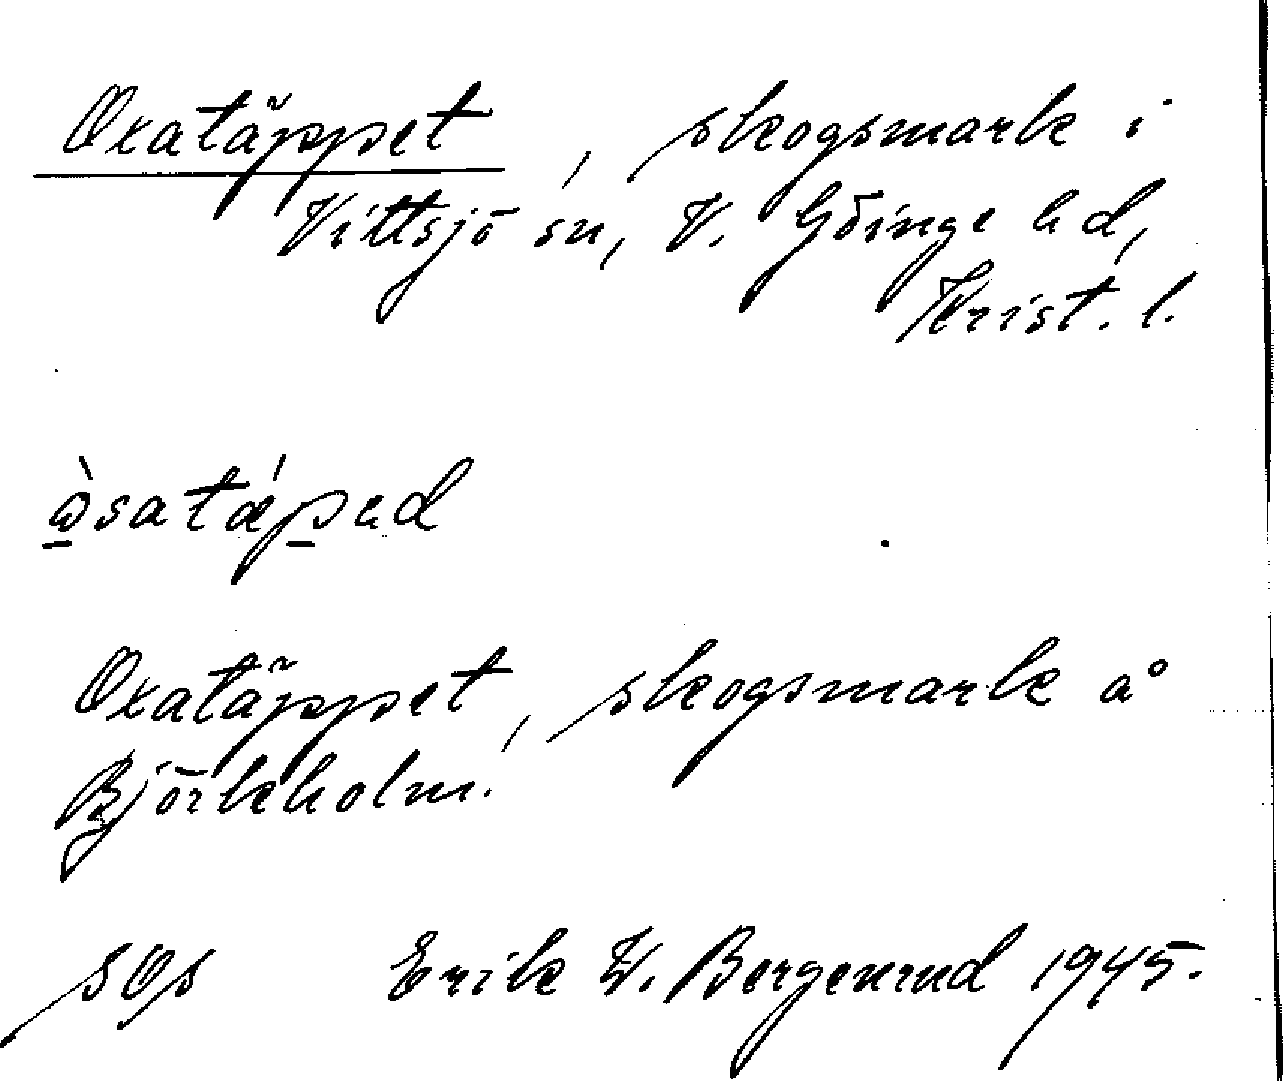 Oxatäppet, skogsmark i
Vittsjö sn, V. Göinge hd,
Krist. l.
Oxatäppet, skogsmark å
Björkeholm.
SOs Erik W. Bergenrud 1945.